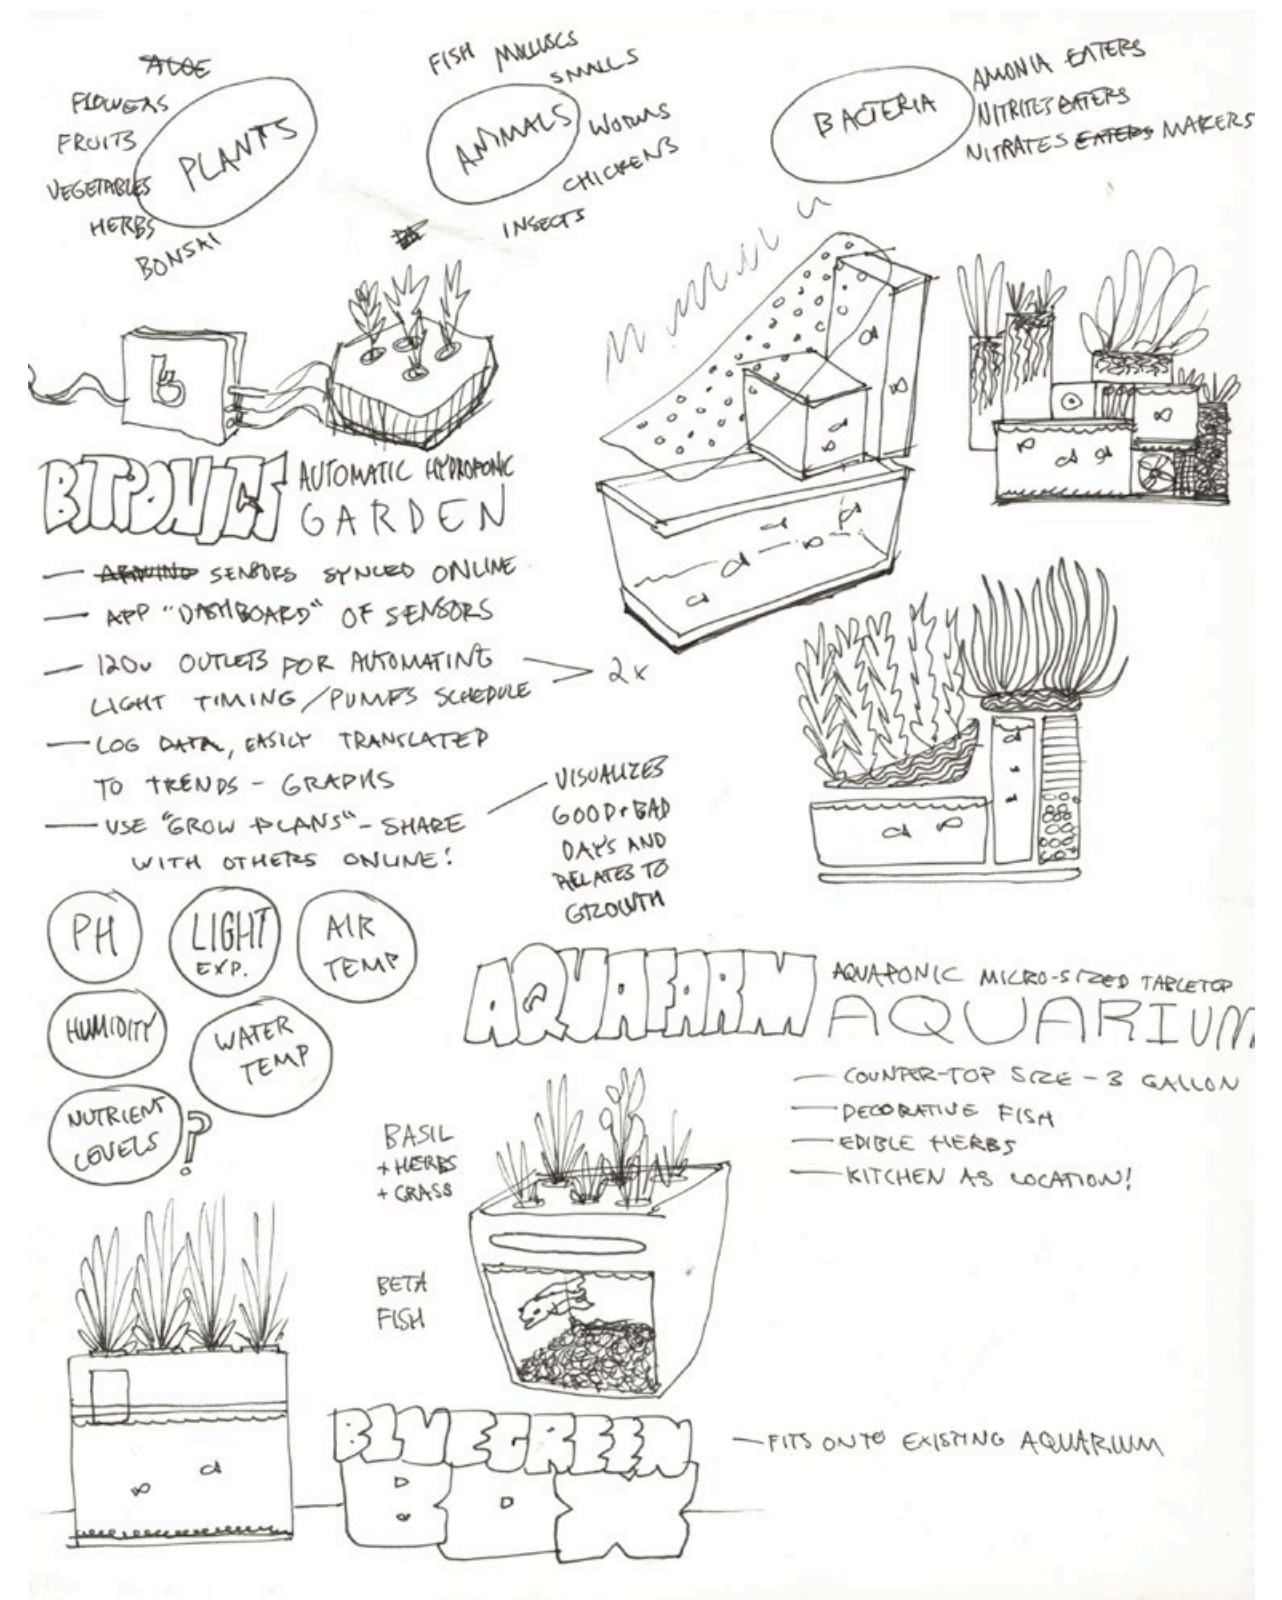 ALOE
FLOWERS
FRUITS
VEGETABLES
HERBS
BONSAI
PLANTS
FISH MOLLUSCS
SNAILS
ANIMALS
WORMS
CHICKENS
INSECTS
BACTERIA
AMONIA EATERS
NITRITES EATERS
NITRATES EATERS MAKERS
b
BITPONICS
AUTOMATIC HYDROPONIC
GARDEN
— ARDUINO SENSORS SYNCED ONLINE
— APP "DASHBOARD" OF SENSORS
— 120V OUTLETS FOR AUTOMATING
LIGHT TIMING/PUMPS SCHEDULE
2x
— LOG DATA, EASILY TRANSLATED
TO TRENDS - GRAPHS
— USE "GROW PLANS" - SHARE
WITH OTHERS ONLINE!
VISUALIZES
GOOD + BAD
DAYS AND
RELATES TO
GROWTH
PH
LIGHT
EXP.
AIR
TEMP
HUMIDITY
WATER
TEMP
NUTRIENT
LEVELS
?
AQUAFARM
AQUAPONIC MICRO-SIZED TABLETOP
AQUARIUM
— COUNTER-TOP SIZE - 3 GALLON
— DECORATIVE FISH
— EDIBLE HERBS
— KITCHEN AS LOCATION!
BASIL
+ HERBS
+ GRASS
BETA
FISH
BLUEGREEN
BOX
— FITS ONTO EXISTING AQUARIUM